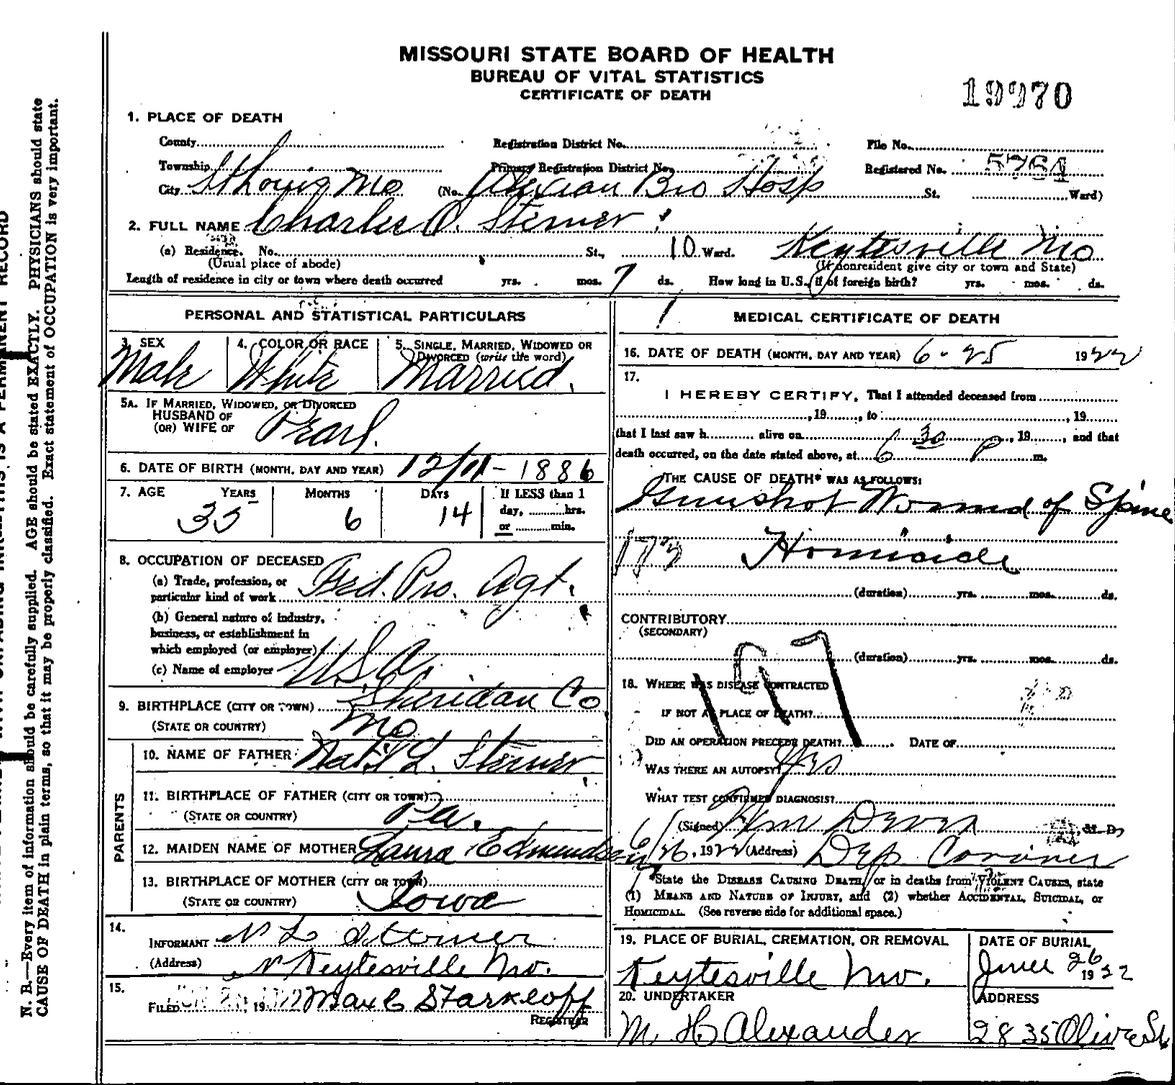 MISSOURI STATE BOARD OF HEALTH
BUREAU OF VITAL STATISTICS
CERTIFICATE OF DEATH
19970
1. PLACE OF DEATH
County Registration District No. File No.
Township Primary Registration District No. Registered No. 5764
City St Louis Mo (No. Alexian Bro Hosp St. Ward)
2. FULL NAME Charles O. Sterner
(a) Residence. No. St., 10 Ward. Keytesville Mo
(Usual place of abode) (If nonresident give city or town and State)
Length of residence in city or town where death occurred yrs. mos. 7 ds. How long in U.S., if of foreign birth? yrs. mos. ds.
PERSONAL AND STATISTICAL PARTICULARS
3. SEX 4. COLOR OR RACE 5. SINGLE, MARRIED, WIDOWED OR
DIVORCED (write the word)
Male White Married.
5A. IF MARRIED, WIDOWED, OR DIVORCED
HUSBAND OF
(OR) WIFE OF Pearl
6. DATE OF BIRTH (MONTH, DAY AND YEAR) 12/11-1886
7. AGE YEARS MONTHS DAYS If LESS than 1
day, hrs.
or min.
35 6 14
8. OCCUPATION OF DECEASED
(a) Trade, profession, or
particular kind of work Fed. Pro. Agt.
(b) General nature of industry,
business, or establishment in
which employed (or employer)
(c) Name of employer U.S.
9. BIRTHPLACE (CITY OR TOWN) Sheridan Co
(STATE OR COUNTRY) Mo
PARENTS
10. NAME OF FATHER Nat'l L. Sterner
11. BIRTHPLACE OF FATHER (CITY OR TOWN)
(STATE OR COUNTRY) Pa.
12. MAIDEN NAME OF MOTHER Laura Edmundson
13. BIRTHPLACE OF MOTHER (CITY OR TOWN)
(STATE OR COUNTRY) Iowa
14.
INFORMANT N L Sterner
(Address) Keytesville Mo.
15.
FILED 19 Max C Starkloff
REGISTRAR
MEDICAL CERTIFICATE OF DEATH
16. DATE OF DEATH (MONTH, DAY AND YEAR) 6-25 1922
17.
I HEREBY CERTIFY, That I attended deceased from
, 19 , to , 19
that I last saw h alive on , 19 , and that
death occurred, on the date stated above, at 6 30 P m.
THE CAUSE OF DEATH* WAS AS FOLLOWS:
Gunshot Wound of Spine
Homicide
(duration) yrs. mos. ds.
CONTRIBUTORY
(SECONDARY)
(duration) yrs. mos. ds.
197
18. WHERE WAS DISEASE CONTRACTED
IF NOT A PLACE OF DEATH?
DID AN OPERATION PRECEDE DEATH? DATE OF
WAS THERE AN AUTOPSY? Yes
WHAT TEST CONFIRMED DIAGNOSIS?
(Signed) Wm Dever M. D.
6/26, 1922 (Address) Dep Coroner
*State the DISEASE CAUSING DEATH, or in deaths from VIOLENT CAUSES, state
(1) MEANS AND NATURE OF INJURY, and (2) whether ACCIDENTAL, SUICIDAL, or
HOMICIDAL. (See reverse side for additional space.)
19. PLACE OF BURIAL, CREMATION, OR REMOVAL DATE OF BURIAL
Keytesville Mo. June 26 1922
20. UNDERTAKER ADDRESS
M. H Alexander 2835 Olive St
N. B.—Every item of information should be carefully supplied. AGE should be stated EXACTLY. PHYSICIANS should state
CAUSE OF DEATH in plain terms, so that it may be properly classified. Exact statement of OCCUPATION is very important.